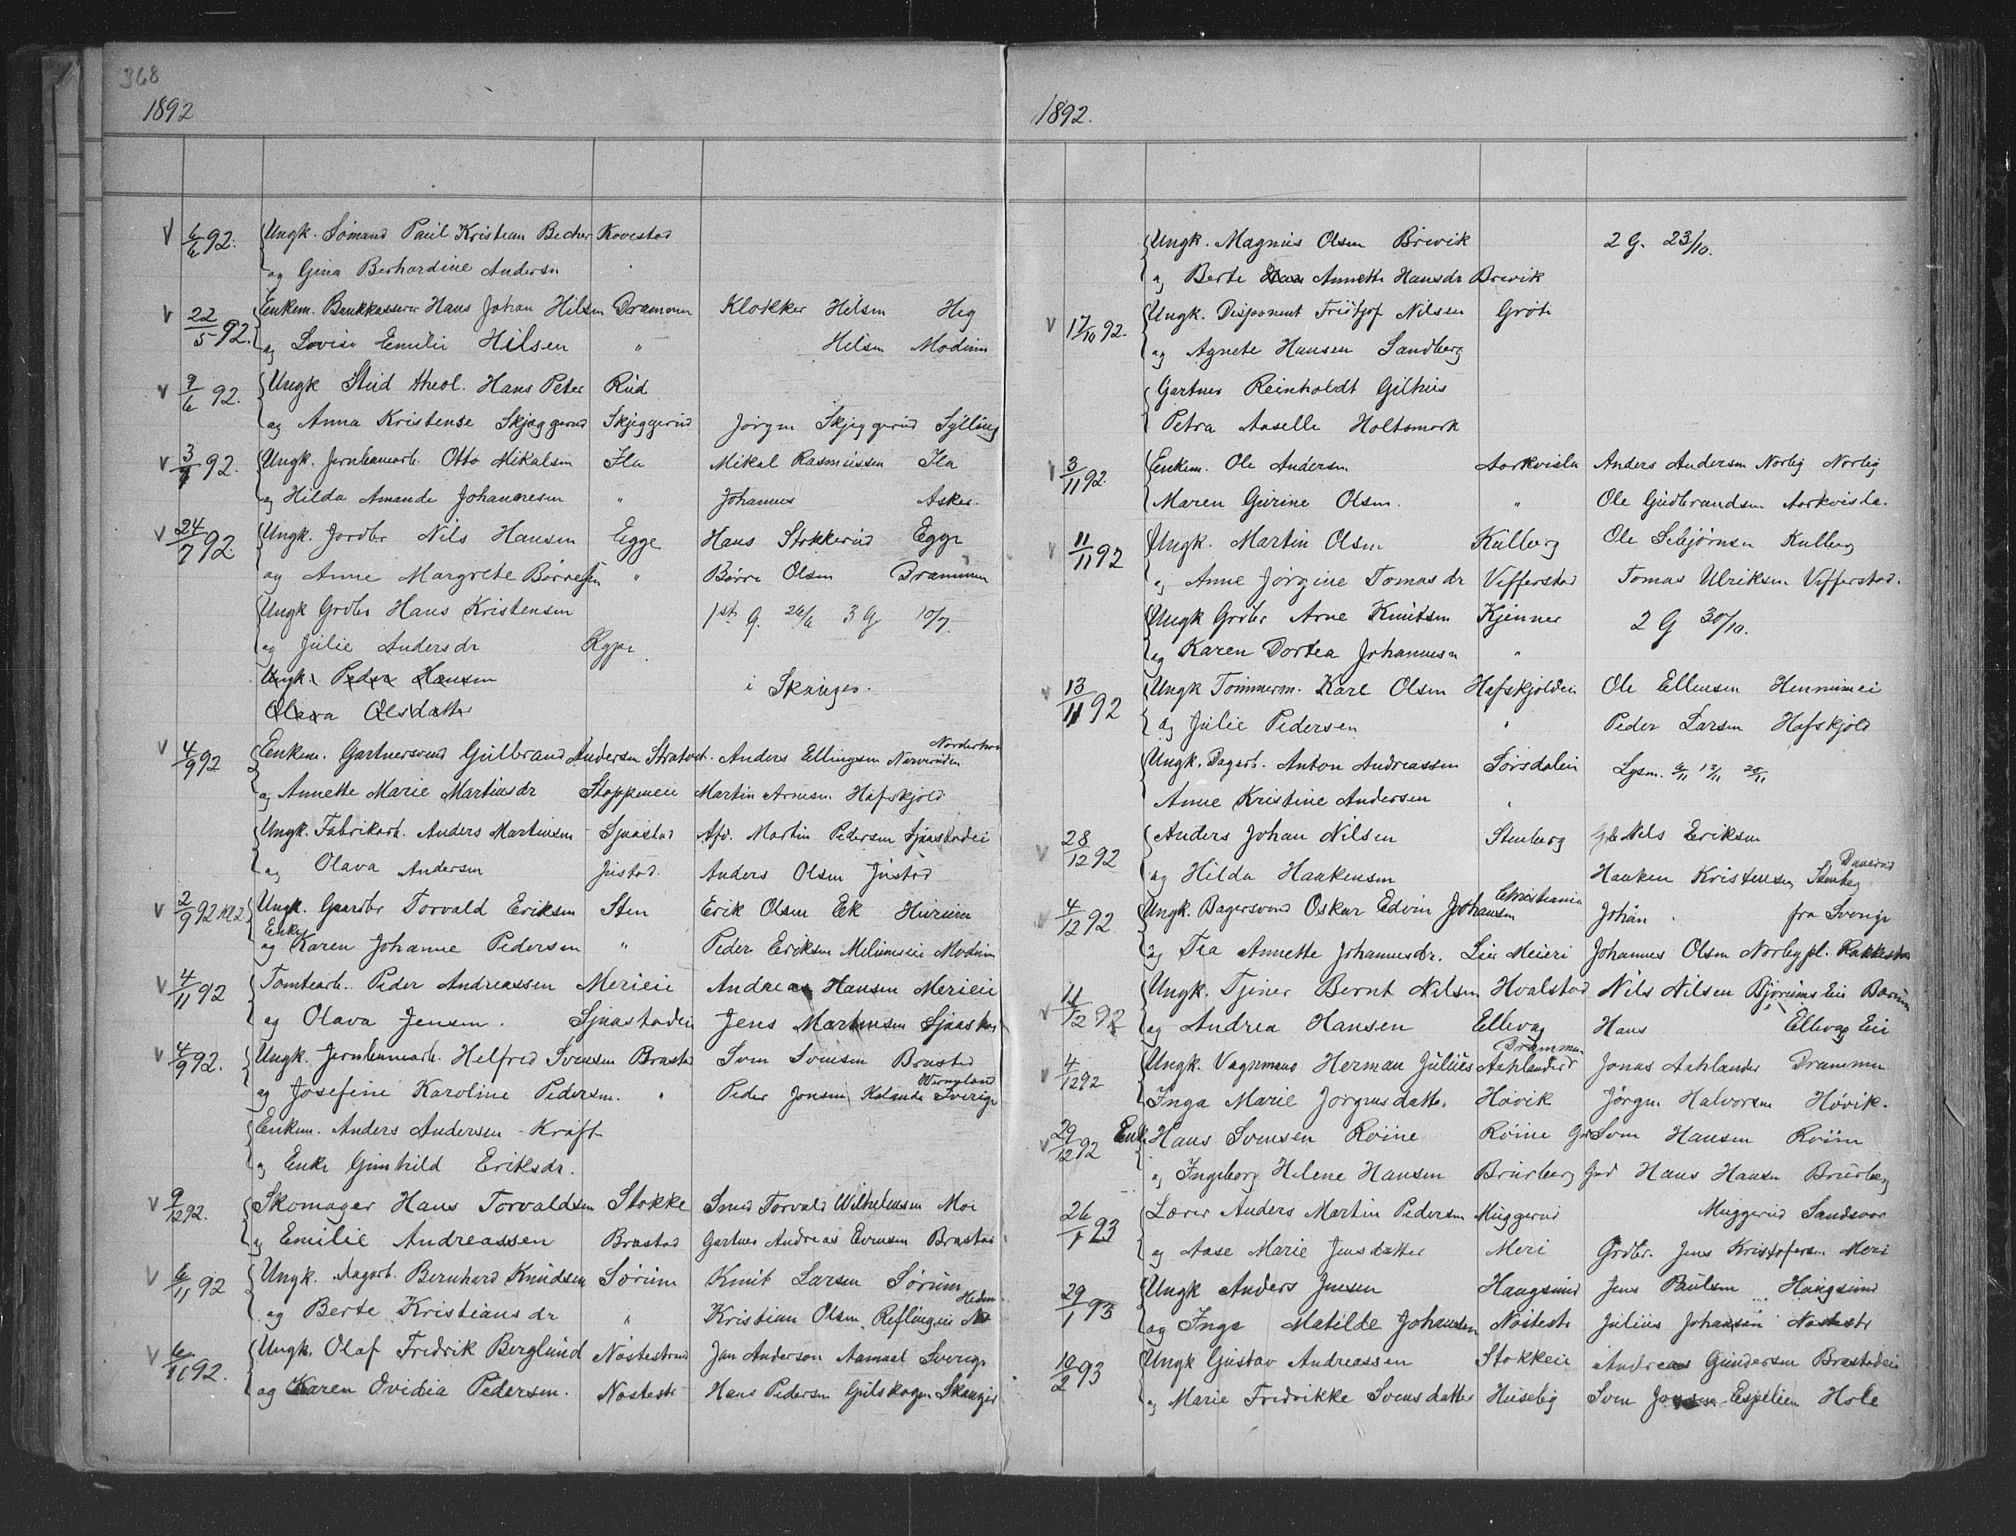 368
1892
V 6/6 92. Ungk. Sømand Paul Kristian Becher Kovestad
og Gina Berhardine Andersn
V 22/5 92. Enkem. Bankkasserer Hans Johan Hilsen Drammen Klokker Hilsen Heg
og Lovise Emilie Hilsen " Hilsen Modum
V 9/6 92. Ungk Stud theol. Hans Peter Rud
og Anna Kristense Skjæggerud Skjeggerud Jørgen Skjeggerud Sylling
V 3/7 92. Ungk. Jernbanearb. Otto Mikalsen Ila Mikal Rasmussen Ila
og Hilda Amande Johannesen " Johannes Asker.
V 24/7 92 Ungk. Jordbr Nils Hansen Egge Hans Stokkerud Egge
og Anne Margrete Børresen " Børre Olsen Drammen
Ungk Grdbr Hans Kristensen 1ste G. 26/6 3 G 10/7.
og Julie Andersdr
Ungk. Peder Hansen i Skauger.
Olava Olsdatter
V 4/9 92 Enkem. Gartnersvend Gulbrand Andersen Anders Ellingsen Norderhov
og Annette Marie Martinsdr Stoppeneie Martin Arnesen Hafskjold
Ungk. Fabrikarb. Anders Martinsen Sjaastad Afd. Martin Pedersen Sjaastadei
og Olava Andersen Justad. Anders Olsen Justad
V 2/9 92 Kl 2 Ungk. Gaardbr Torvald Eriksen Sten Erik Olsen Ek Hurum
og Enke Karen Johanne Pedersen " Peder Eriksen Modum
V 4/11 92 Tomtearb. Peder Andreassen Merieie Andreas Hansen Merieie
og Olava Jensen. Sjaastadeie Jens Martinsen Sjaastad
V 4/9 92. Ungk. Jernbanearb. Helfred Svensen Brastad Sven Svensen Brastad
og Josefine Karoline Pedersen. " Peder Jonsen Wermeland Sverige
Enkem. Anders Andersen - Kraft
og Enke Gunhild Eriksdr.
V 9/12 92. Skomager Hans Torvaldsen Stokke Smed Torvald Wilhelmsen Moe
og Emilie Andreassen Brastad Gartner Andreas Evensen Brastad
V 6/11 92 Ungk. Dagarb. Bernhard Knudsen Sørum Knut Larsen Sørum
og Berte Kristiansdr " Kristian Olsen
V 6/11 92. Ungk. Olaf Fredrik Berglund Nøstestrand Jan Anderson Aamaal Sverige
og Karen Ovidia Pedersen. Nøstestr Hans Pedersen Gulskogen Skauger
1892.
Ungk. Magnus Olsen Brevik 2 G. 23/10.
og Berte Annette Hansdr Brevik
V 17/10 92. Ungk. Disponent Fritjof Nilsen Grøt
og Agnete Hansen Sandberg
Gartner Reinholdt Gilhus
Petra Aaselle Holtsmark
V 3/11 92. Enkem. Ole Andersen Aarkvisla Anders Andersen Norlig Norlig
Maren Gurine Olsen. " Ole Gudbrandsen Aarkvisla.
V 11/11 92 Ungk. Martin Olsen Kulberg Ole Sebjørnsen Kulberg
og Anne Jørgine Tomasdr Vefferstad Tomas Ulriksen Vefferstad.
Ungk Grdbr Arne Knutsen Kjenner 2 G 30/10.
og Karen Dortea Johannesen "
V 13/11 92 Ungk Tømmerm. Karl Olsen Hafskjoldeie Ole Ellensen
og Julie Pedersen " Peder Larsen Hafskjold
Ungk. Dagarb. Anton Andreassen Sørsdalen Lysn. 6/11 13/11 20/11
Anne Kristine Andersen
V 28/12 92 Anders Johan Nilsen Stenberg Nils Eriksen
og Hilda Haakensen Haaken Kristensen Stenberg
V 4/12 92 Ungk. Bagersvend Oskar Edvin Johansen Christiania Johan fra Sverige
og Tea Annette Johannesdr. Lie Meieri Johannes Olsen Norbypl. Rakkestad
V 11/12 92 Ungk. Tjener Bernt Nilsen Hvalstad Nils Nilsen Bjorums Eie Bærum
og Andrea Hansen Ellevag Hans Ellevag Eie
V 4/12 92 Ungk. Vognmand Herman Julius Aahlander Drammen Jonas Aahlander Drammen
Inga Marie Jørgensdatter. Høvik Jørgen Halvorsen Høvik.
V 29/12 92 Enk. Hans Svensen Røine Røine Grd Sven Hansen Røine
og Ingeborg Helene Hansen Brurberg Grd Hans Hansen Brurberg
26/1 93 Lærer Anders Martin Pedersen Muggerud Muggerud Sandsvær
og Aase Marie Jensdatter Meri Grdbr. Jens Kristofersen Meri
29/1 93 Ungk Anders Jensen Haugsund Jens Paulsen Haugsund
og Inga Matilde Johansen Nøstestr Julius Johansen Nøstestr
19/2 93 Ungk Gustav Andreassen Stokkeie Andreas Gundersen Brastadeie
og Marie Fredrikke Svensdatter Huseby Sven Jonsen Espelien Hole